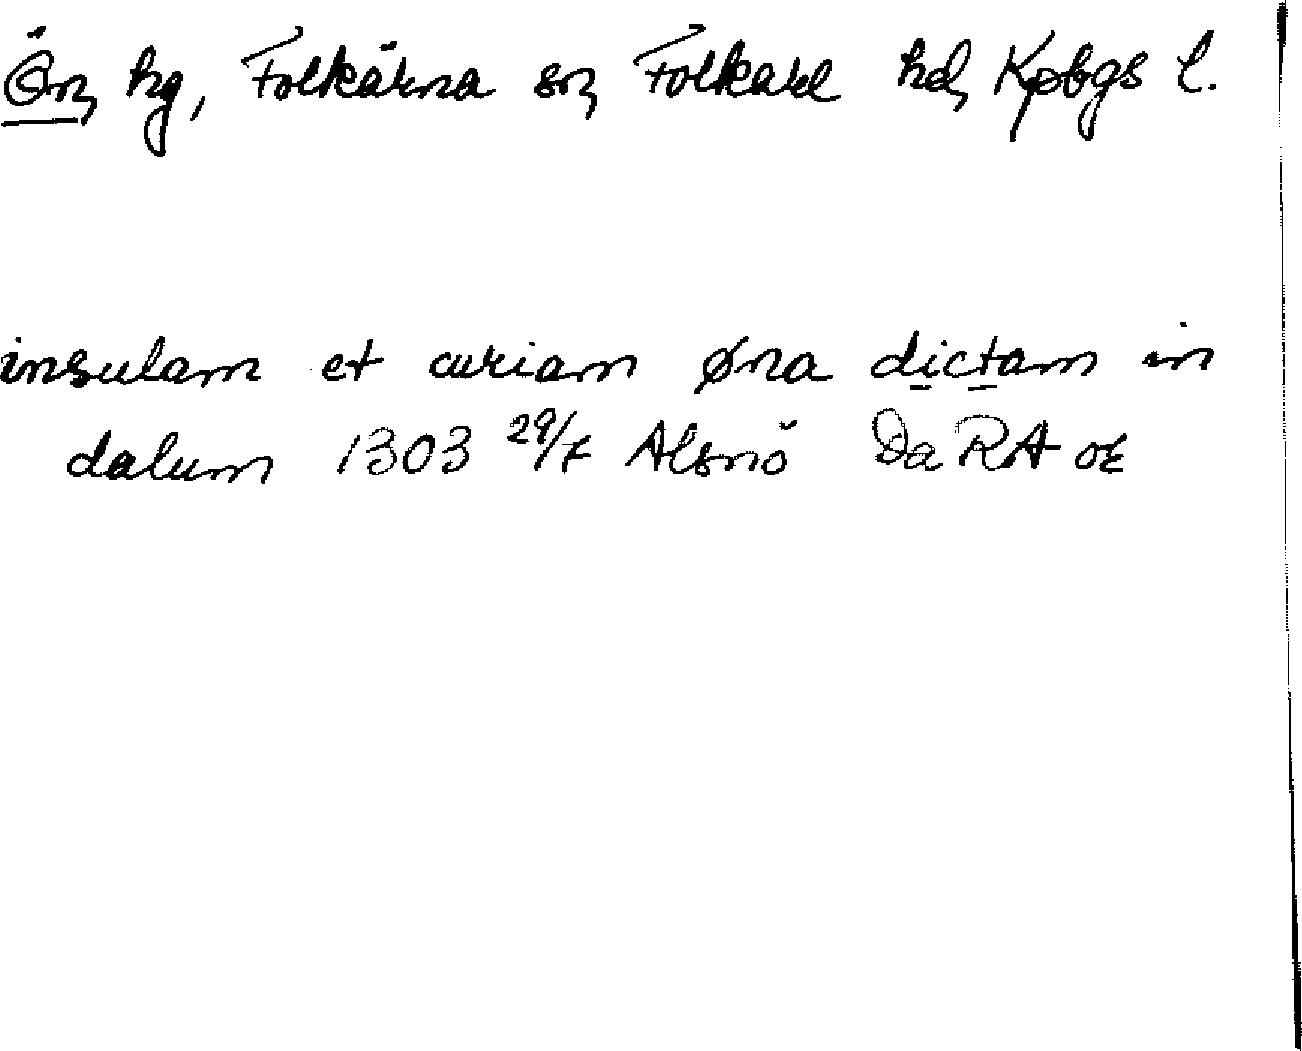 Ön, hg, Folkärna sn, Folkare hd, Kpbgs l.
insulam et curiam øna dictam in
dalum 1303 29/7 Alsnö Da RA or